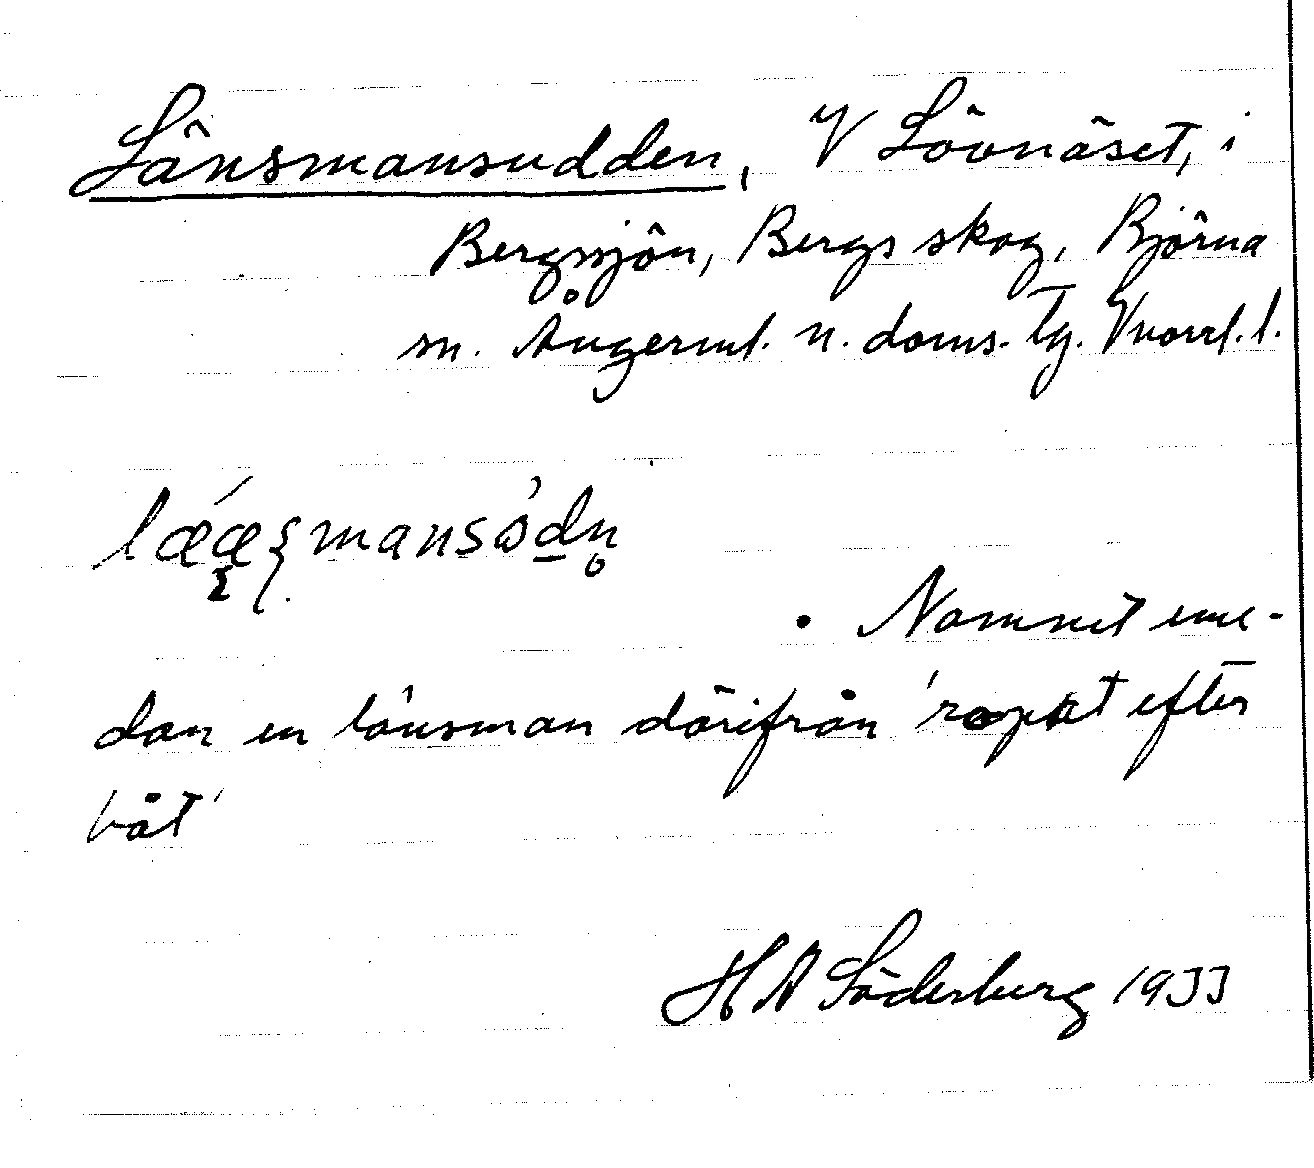 Länsmansudden, V Lövnäset, i
Bergsjön, Bergs skog, Björna
sn. Ångerml. n. doms. tg. Vnorrl. l.
lǽæʂmansòdn̥
. Namnet eme-
dan en länsman därifrån 'ropat efter
båt'
H A Söderberg 1933